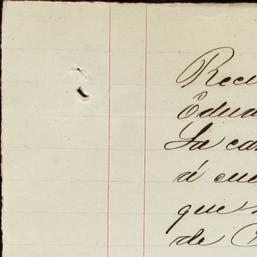 Reci
Edua
La ca
á cue
que
de